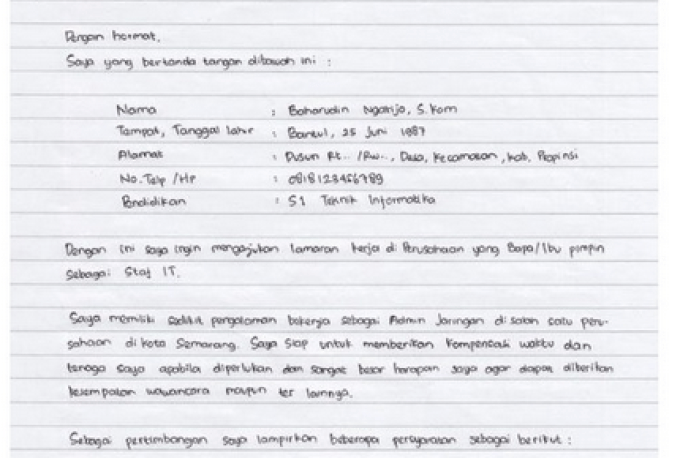 Dengan hormat,
Saya yang bertanda tangan dibawah ini :
Nama : Baharudin Ngatijo, S.Kom
Tempat, Tanggal lahir : Bantul, 25 Juni 1987
Alamat : Dusun Rt.. /Rw.., Desa, Kecamatan, Kab, Propinsi
No.Telp /HP : 0818123456789
Pendidikan : S1 Teknik Informatika
Dengan ini saya ingin mengajukan lamaran kerja di Perusahaan yang Bapa/Ibu pimpin
sebagai Staf IT.
Saya memiliki sedikit pengalaman bekerja sebagai Admin Jaringan di salah satu peru-
sahaan di kota Semarang. Saya siap untuk memberikan kompensasi waktu dan
tenaga saya apabila diperlukan dan sangat besar harapan saya agar dapat diberikan
kesempatan wawancara maupun tes lainnya.
Sebagai pertimbangan saya lampirkan beberapa persyaratan sebagai berikut :